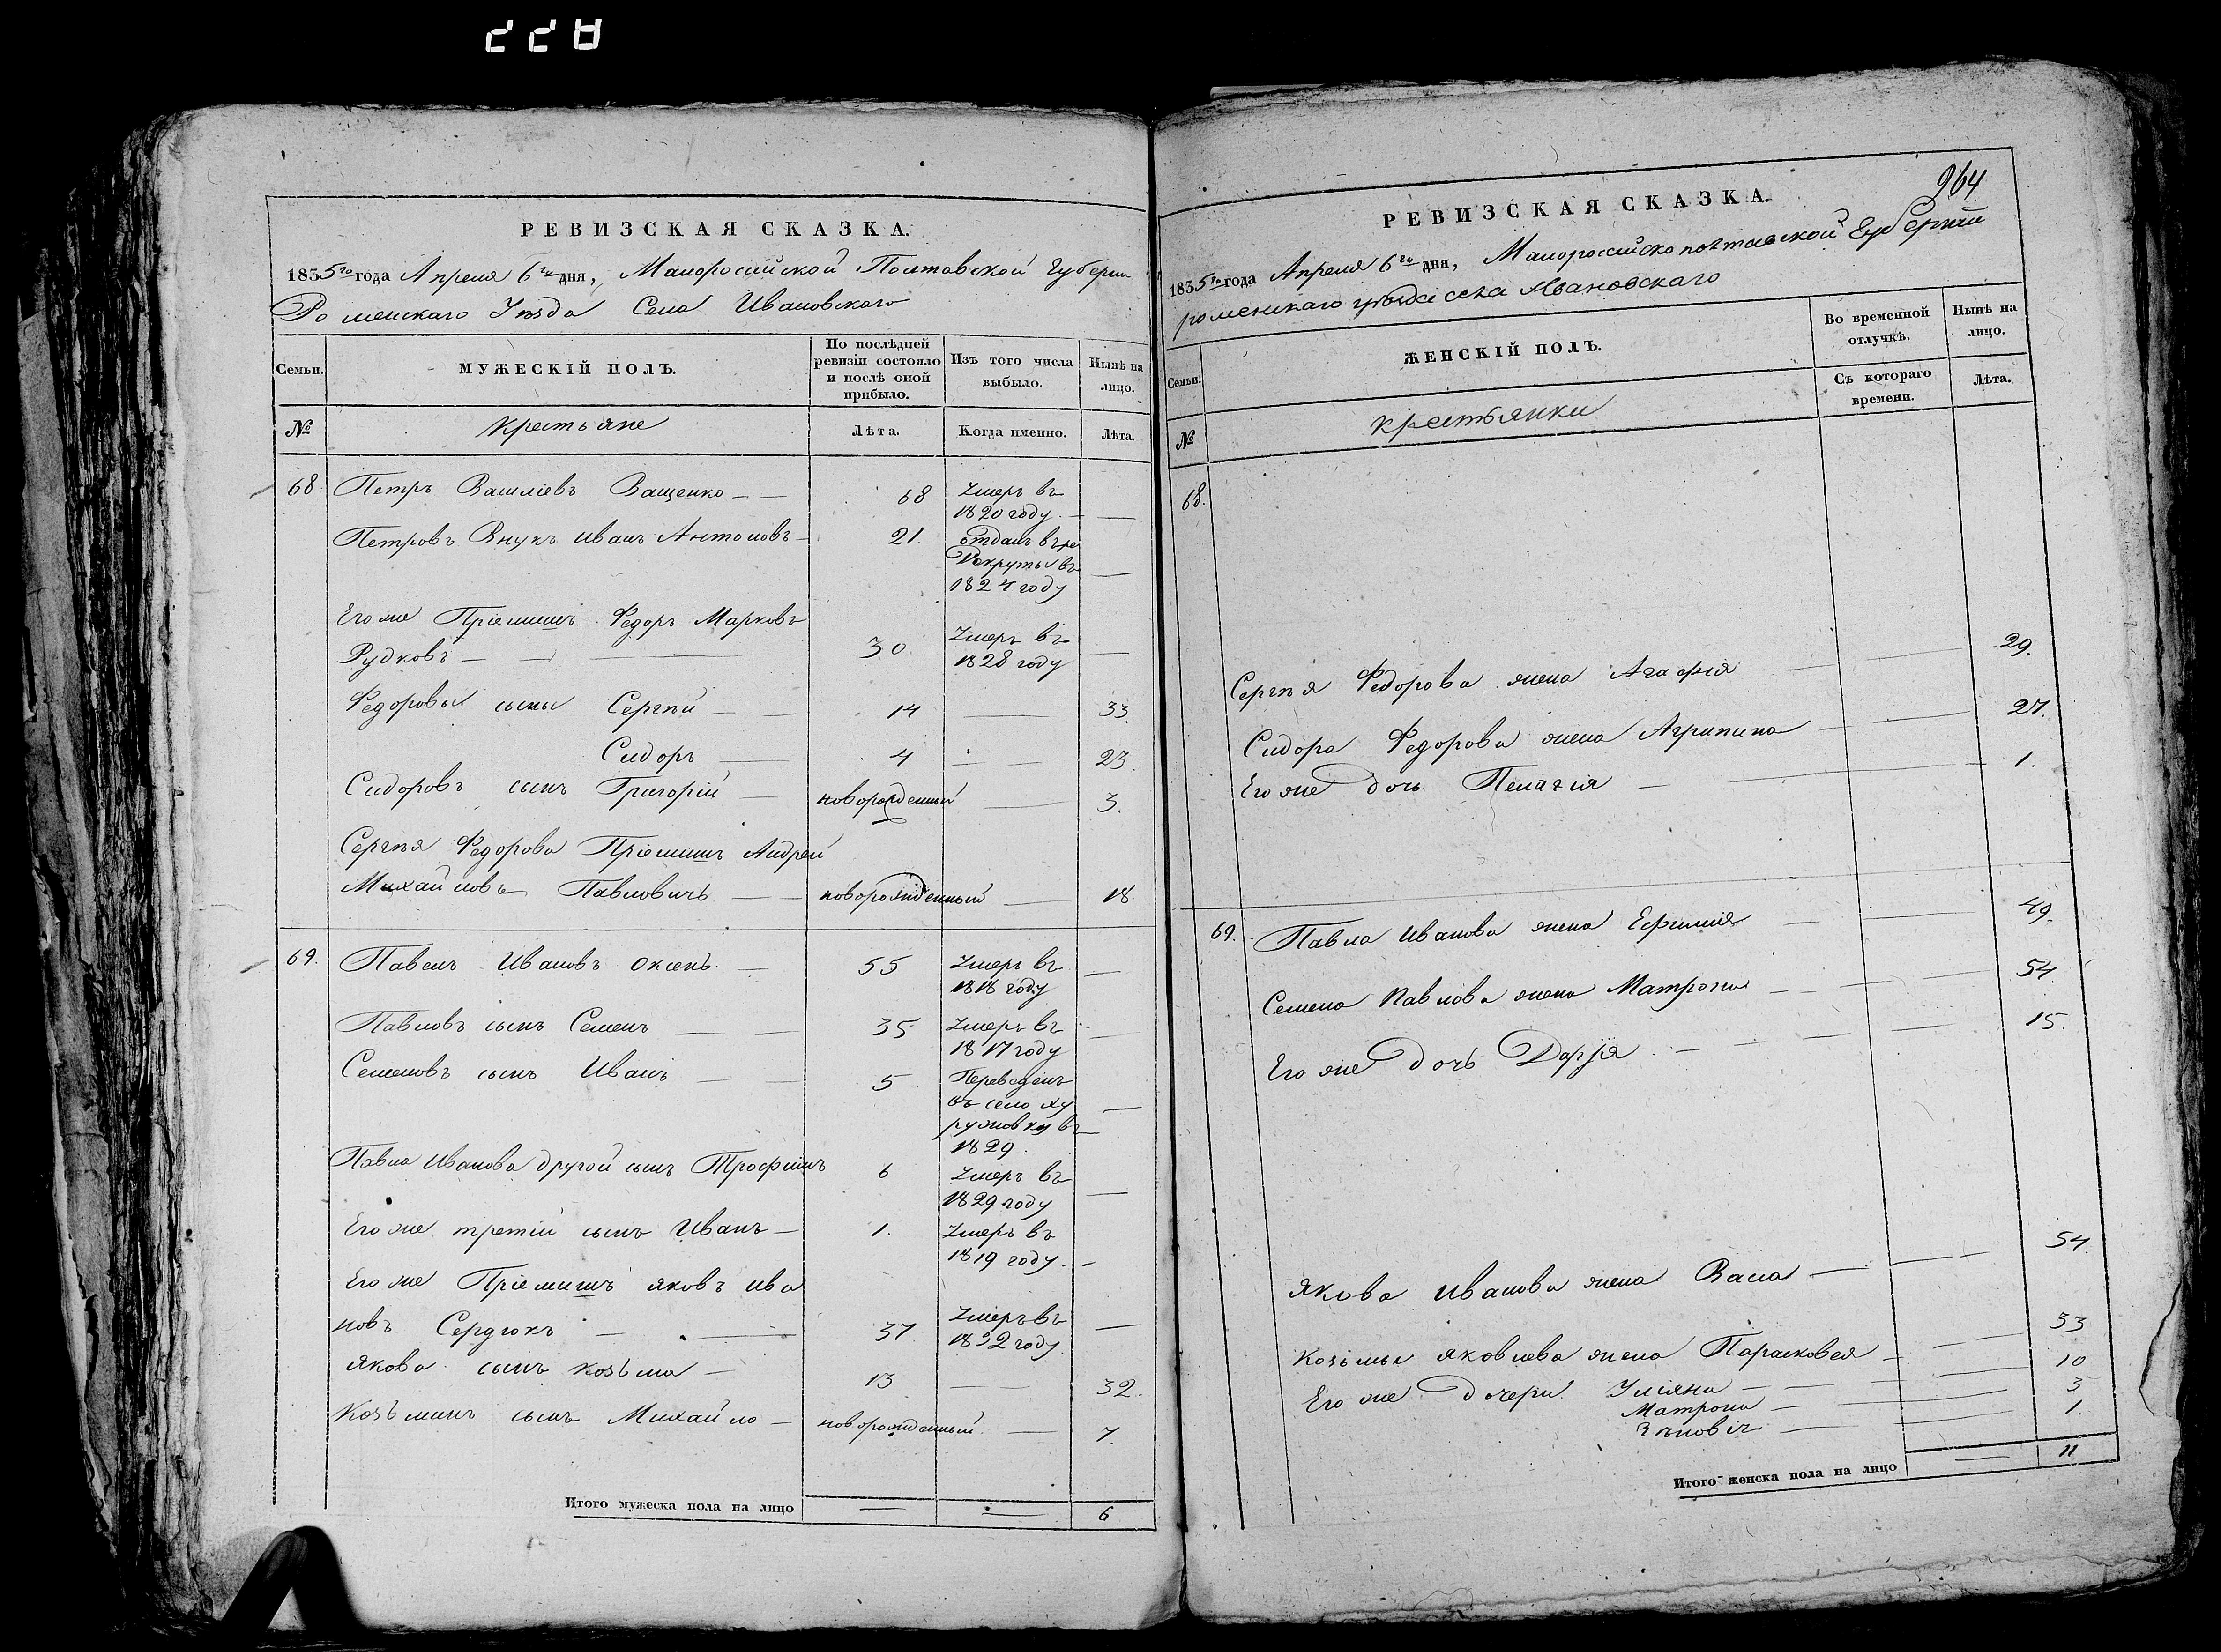 228
РЕВИЗСКАЯ СКАЗКА.
1835го года Апреля 6го дня, Малоросийской Полтавской Губернии
Роменскаго Уѣзда Села Ивановскаго
Семьи.
МУЖЕСКІЙ ПОЛЪ.
По послѣдней ревизіи состояло и послѣ оной прибыло.
Изъ того числа выбыло.
Нынѣ на лицо.
№
Крестьяне
Лѣта.
Когда именно.
Лѣта.
68 Петръ Василіевъ Ващенко — — 68 Умеръ въ
1820 году. —
Петровъ Внукъ иванъ Антоновъ — 21. отданъ въ ре
круты въ
1824 году —
Его же Пріемишъ Федоръ Марковъ
Рудковъ — — — 30. Умеръ въ
1828 году —
Федоровы сыны Сергѣй — — 14 — 33.
Сидоръ — 4 — — 23.
Сидоровъ сынъ Григорій — новорожденный — 3.
Сергѣя Федорова Пріемишъ Андрей
Михайловъ Павловичъ — — новорожденный — 18.
69. Павелъ Ивановъ Оксенъ. — 55 Умеръ въ
1818 году —
Павловъ сынъ Семенъ — — 35 Умеръ въ
1817 году —
Семеновъ сынъ Иванъ — — 5 Переведенъ
въ село ху
ружовку въ
1829. —
Павла Иванова другой сынъ Трофимъ 6 Умеръ въ
1829 году —
Его же третій сынъ Иванъ — 1. Умеръ въ
1819 году. —
Его же Пріемишъ яковъ ива
новъ Сердюкъ — — 37 Умеръ въ
1832 году. —
Якова сынъ козьма — 13 — — 32.
Козьминъ сынъ Михайло — новорожденный. — 7.
Итого мужеска пола на лицо — — 6
964
РЕВИЗСКАЯ СКАЗКА.
1835го года Апреля 6го дня, Малоросийско полтавской Губернии
роменскаго уѣзда села Ивановскаго
Семьи.
ЖЕНСКІЙ ПОЛЪ.
Во временной отлучкѣ.
Нынѣ на лицо.
Съ котораго времени.
Лѣта.
№
крестьянки
68.
Сергѣя Федорова жена Агафія — — 29.
Сидора Федорова жена Агрипина — — 27.
Его же дочь Пелагія — — 1.
69. Павла Иванова жена Ефимія — — 49.
Семена Павлова жена Матрона — — — 54.
Его же дочь Дарія — — — 15.
Якова Иванова жена Васа — — — 54.
Козьмы яковлева жена Парасковея — — 33
Его же дочери Уліяна — — 10
Матрона — — 3
Зѣновія — — 1.
Итого женска пола на лицо — 11